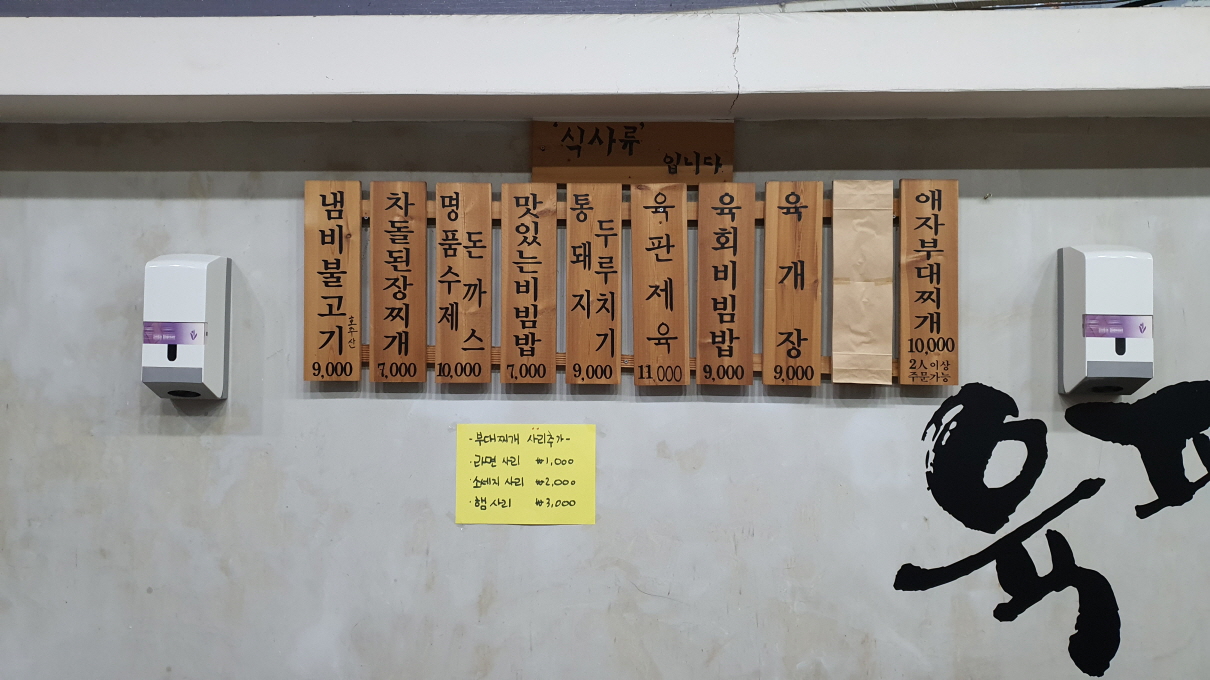 '식사류'
입니다
냄비불고기
호주산
9,000
차돌된장찌개
7,000
명품수제
돈까스
10,000
맛있는비빔밥
7,000
통돼지
두루치기
9,000
육판제육
11,000
육회비빔밥
9,000
육개장
9,000
애자부대찌개
10,000
2人이상
주문가능
-부대찌개 사리추가-
·라면 사리 ₩1,000
·소세지 사리 ₩2,000
·햄 사리 ₩3,000
육